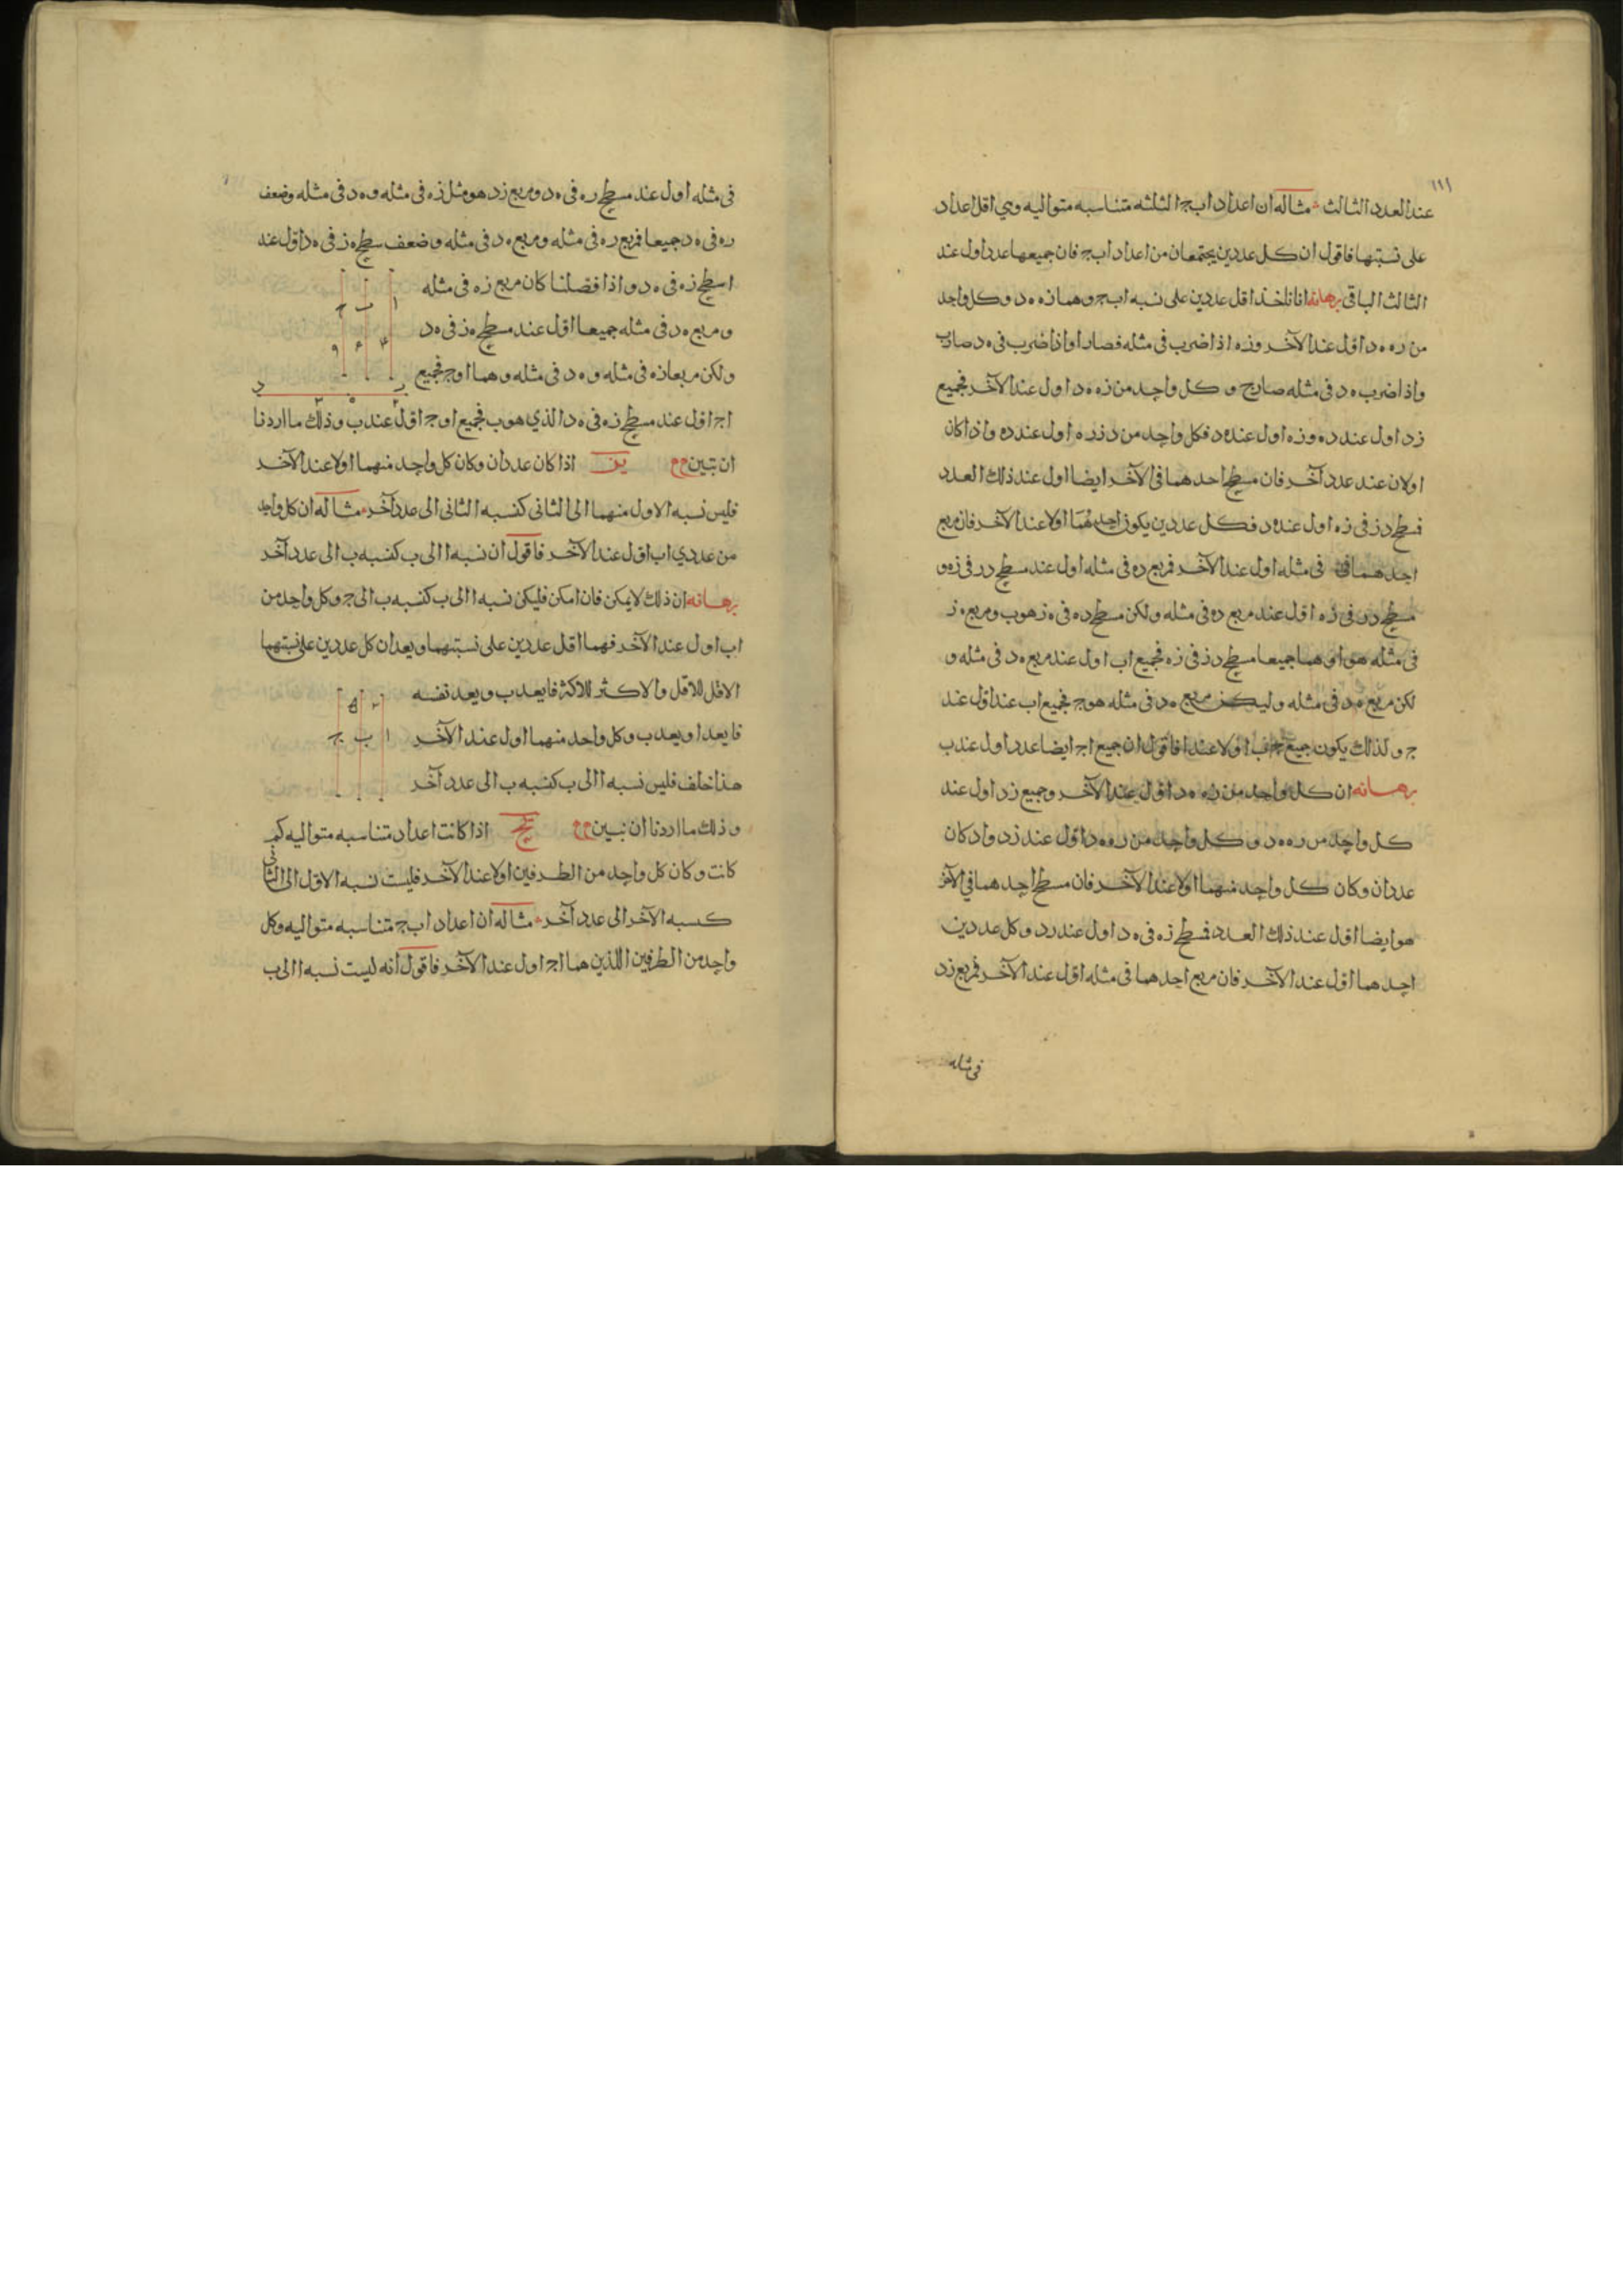 ١١١
عند العدد الثالث مثاله ان اعداد ا ب ج الثلثه متناسبه متواليه وهي اقل اعداد
على نسبتها فاقول ان كل عددين يجتمعان من اعداد ا ب ج فان جميعها عدد اول عند
الثالث الباقي برهانه انا ناخذ اقل عددين على نسبه ا ب ج وهما زه ه د وكل واحد
من زه ه د اول عند الآخر وزه اذا ضرب في مثله فصار ا واذا ضرب في ه د صار ب
واذا ضرب ه د في مثله صار ج و كل واحد من زه ه د اول عند الآخر فجميع
زد اول عند ده وزه اول عند ه د فكل واحد من د ز ز ه اول عند ده واذا كان
اولان عند عدد آخر فان مسطح احدهما في الآخر ايضا اول عند ذلك العدد
فسطح د ز في زه اول عند ه د فكل عددين يكون احدهما اولا عند الآخر فان مربع
احدهما في مثله اول عند الآخر فمربع ده في مثله اول عند مسطح د ز في زه و
مسطح د ز في زه اول عند مربع ده في مثله ولكن مسطح ده في ه ز هو ب ومربع ه ز
في مثله هو ا وهما جميعا مسطح د ز في زه فجميع ا ب اول عند مربع ه د في مثله و
لكن مربع ه د في مثله وليكن مربع ه د في مثله هو ج فجميع ا ب عند اول عند
ج ولذلك يكون جميع ج ب اولا عند ا فاقول ان جميع ا ج ايضا عدد اول عند ب
برهانه ان كل واحد من زه ه د اول عند الآخر وجميع زد اول عند
كل واحد من زه ه د و كل واحد من زه ه د اول عند زد واد كان
عددان وكان كل واحد منهما اولا عند الآخر فان مسطح احدهما في الآخر
هو ايضا اول عند ذلك العدد فسطح زه في ه د اول عند زد وكل عددين
احدهما اول عند الآخر فان مربع احدهما في مثله اول عند الآخر فمربع زد
في مثله
في مثله اول عند مسطح زه في ه د ومربع زد هو مثل زه في مثله و ه د في مثله وضعف
زه في ه د جميعا فمربع زه في مثله ومربع ه د في مثله وضعف سطح ه ز في ه د اول عند
اسطح زه في ه د واذا فصلنا كان مربع زه في مثله
ومربع ه د في مثله جميعا اول عند مسطح ه ز في ه د
ولكن مربعا زه في مثله و ه د في مثله وهما ا و ج فجميع
ا ج اول عند مسطح زه في ه د الذي هو ب فجميع ا و ج اول عند ب وذلك ما اردنا
ا ب ج
٤ ٦ ٩
ز ه د
ان نبين يز اذا كان عددان وكان كل واحد منهما اولا عند الآخر
فليس نسبه الاول منهما الى الثاني كنسبه الثاني الى عدد آخر مثاله ان كل واحد
من عددي ا ب اول عند الآخر فاقول ان نسبه ا الى ب كنسبه ب الى عدد آخر
برهانه ان ذلك لا يمكن فان امكن فليكن نسبه ا الى ب كنسبه ب الى ج وكل واحد من
ا ب اول عند الآخر فهما اقل عددين على نسبتهما ويعدان كل عددين على نسبتهما
الاقل للاقل والاكثر للاكثر فا يعد ب ويعد نفسه
فا يعد ا ويعد ب وكل واحد منهما اول عند الآخر
هذا خلف فليس نسبه ا الى ب كنسبه ب الى عدد آخر
ا ب ج
وذلك ما اردنا ان نبين يح اذا كانت اعداد متناسبه متواليه كم
كانت وكان كل واحد من الطرفين اولا عند الآخر فليست نسبه الاول الى الثاني
كنسبه الآخر الى عدد آخر مثاله ان اعداد ا ب ج متناسبه متواليه وكل
واحد من الطرفين اللذين هما ا ج اول عند الآخر فاقول انه ليست نسبه ا الى ب